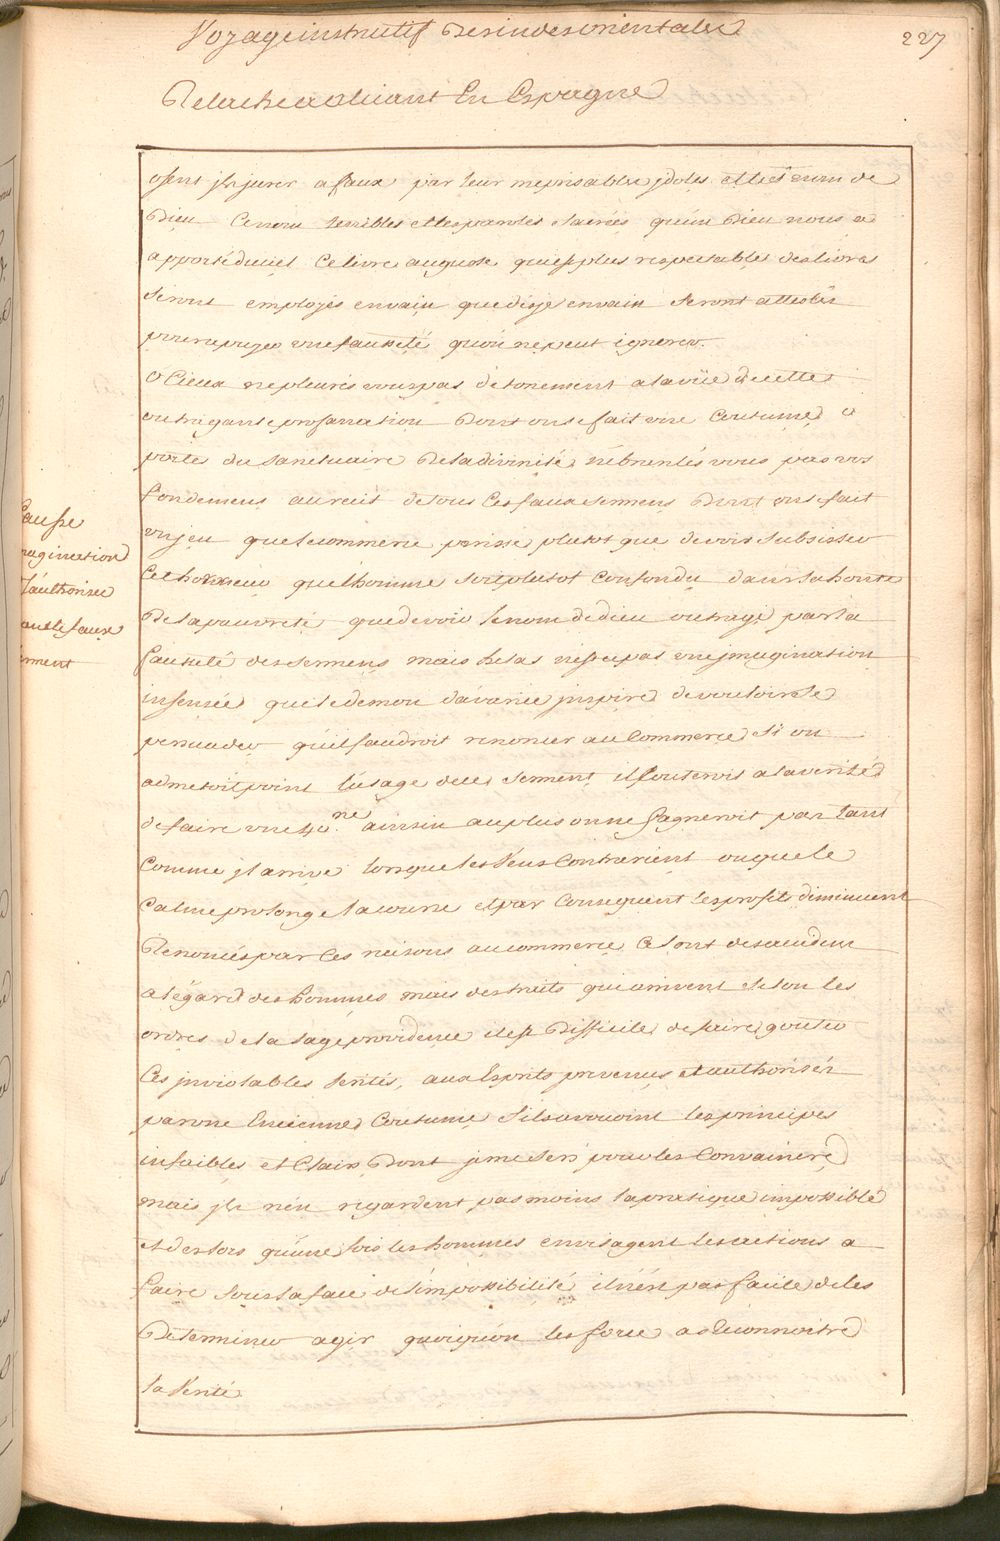 Voyage instrutif Des indes orientales
227
Relache a alicant En Espagne
osent jls jurer a faux par leur meprisables jdoles et le st nom de
Dieu Ce nom terribles et les paroles sacrées qu'un Dieu nous a
apporté du ciel Ce livre auguste qui est plus respectables des livres
Seront employés en vain que disje en vain Seront attestés
pour apuyer une fausseté qu'on ne peut ignorer.
O Cieux ne pleurés vous pas détonement a la vüe de cette
outragante profanation Dont on se fait une Coutume a
porte du Sanctuaire De la divinité, n'ébranlés vous pas vos
fondemens au recit de tous Ces faux sermens Dont on se fait
un jeu que le commerce perisse plutot que de voir subsister
Cet horreur que l'homme soit plutot Confondu dans la honte
De la pauvreté que de voir le nom de dieu outragé par la
fausseté des sermens mais helas n'est ce pas une jmagination
insensée que le demon d'avarice jnspire de vouloir se
persuader qu'il faudroit renoncer au Commerce Si on
admetoit point l'usage de ce serment, il
de faire une 40.ne ainsin au plus on ne gagneroit pas tant
Comme jl arrive lorsque les Vens Contrarient ou que le
Calme prolonge la course et par Consequent les profits diminuent
Renoncés par Ces raisons au commerce Ce sont des accidens
a l'égard des hommes mais des traits qui arrivent selon les
ordres de la sage providence il est Difficile de faire gouter
Ces jnviolables verités, aux Esprits prevenus et authorisés
par une Encienne Coutume S'ils avouoint les principes
infaibles et Clairs Dont je me sers pour les Convaincre
mais jls n'en regardent pas moins la pratique impossible
et des lors qu'une fois les hommes envisagent les actions a
faire sous la face de l'impossibilité il n'est pas facile de les
Determiner agir quoiqu'on les force a Reconnoitre
la Verité
Fausse
maginnation
d'authoriser
faux
erment